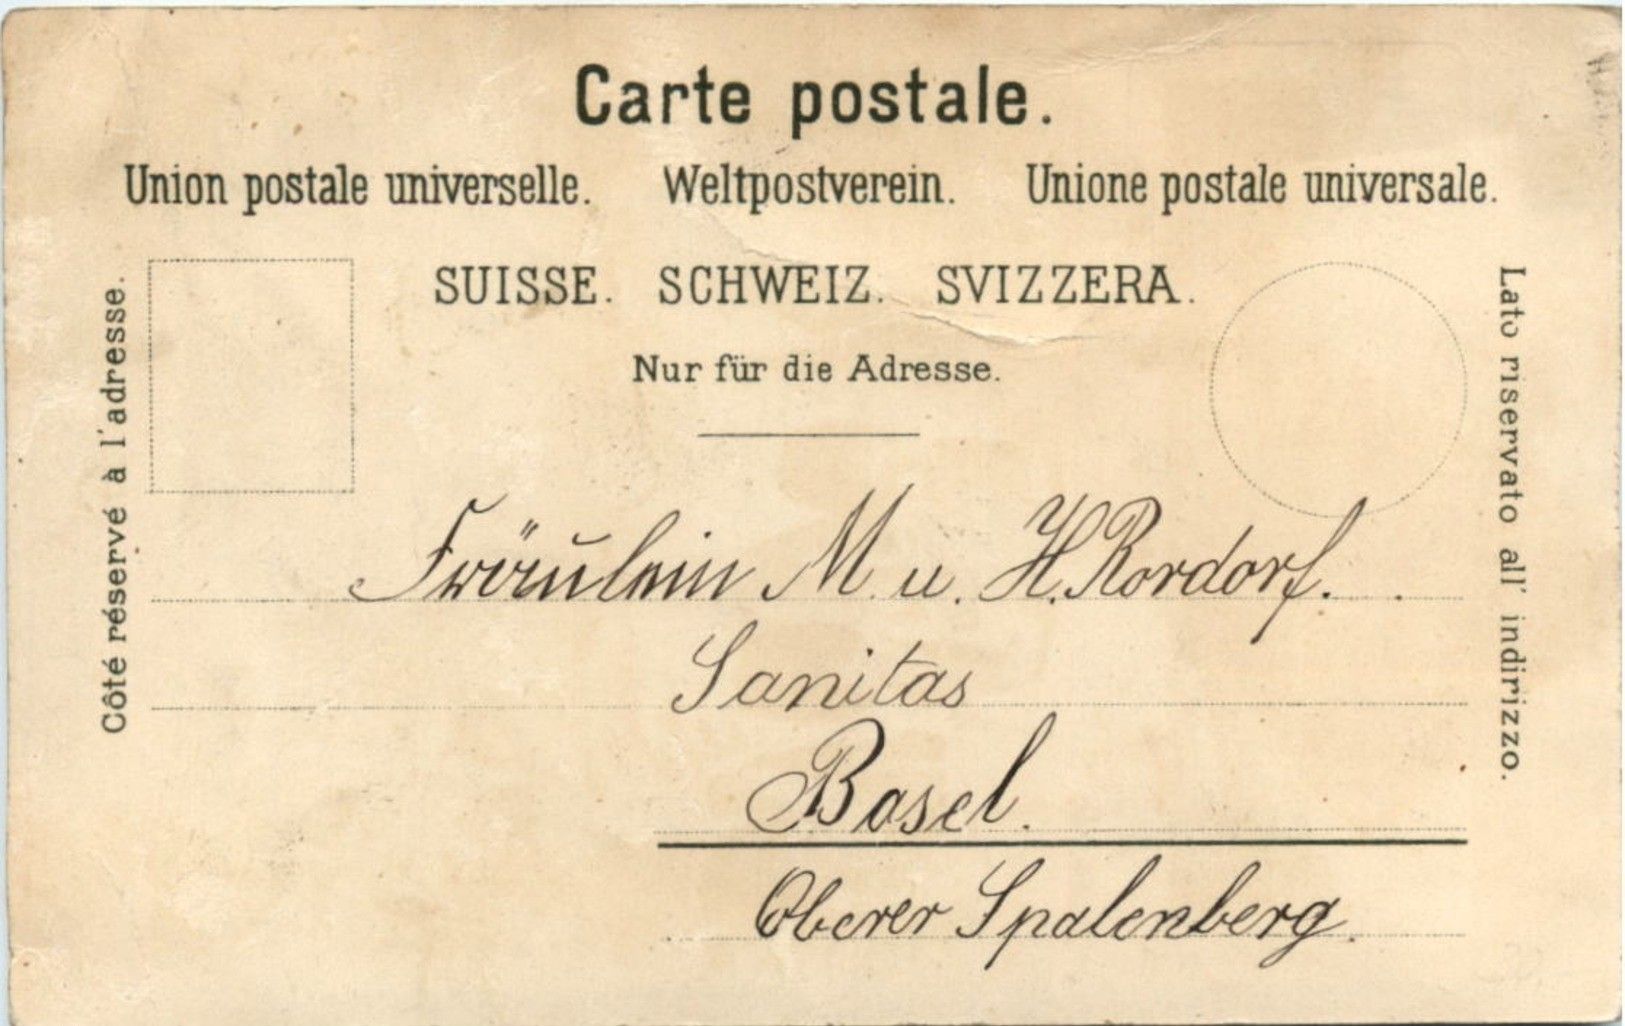 Carte postale.
Union postale universelle. Weltpostverein. Unione postale universale.
SUISSE. SCHWEIZ. SVIZZERA.
Nur für die Adresse.
Côté réservé à l'adresse.
Lato riservato all' indirizzo.
Fräulein M. u. H. Rordorf.
Sanitas
Basel.
Oberer Spalenberg.